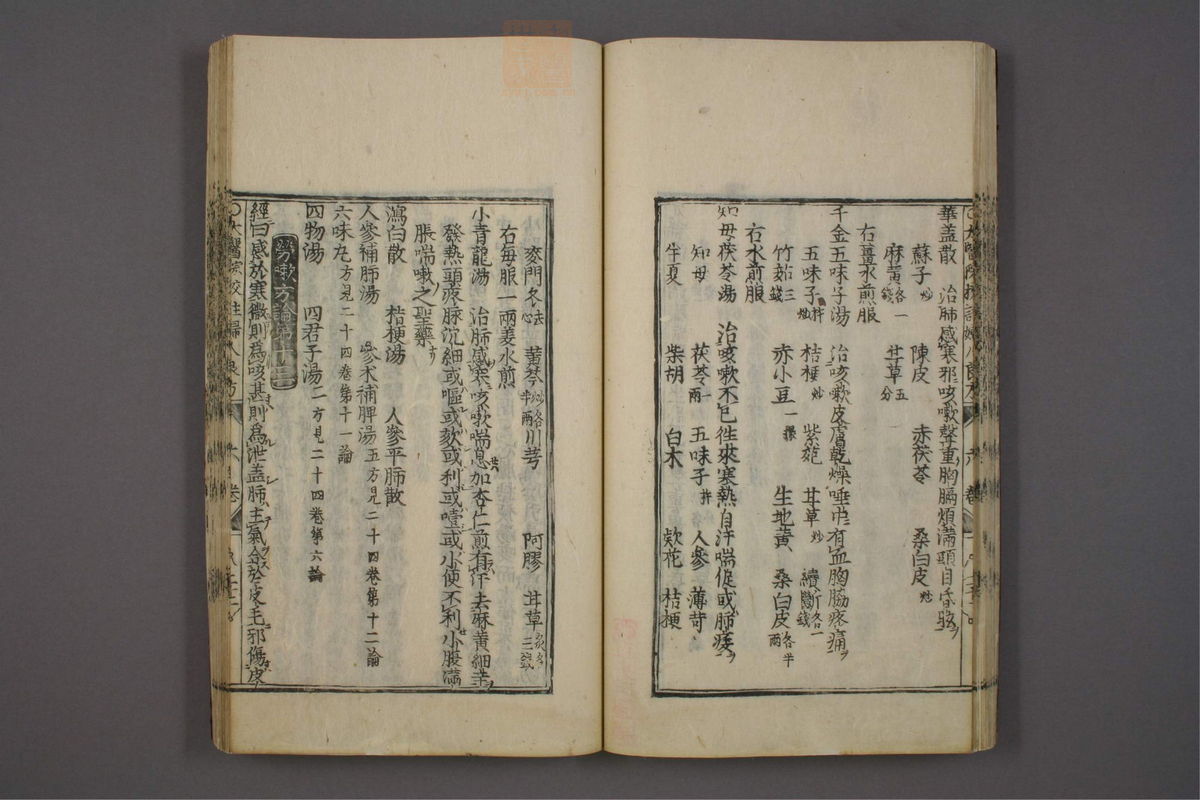 華盖散 治肺感寒邪咳嗽聲重胸膈煩滿頭目昏眩
蘇子炒 陳皮 赤茯苓 桑白皮炒
麻黄各一錢 甘草五分
右薑水煎服
千金五味子湯 治咳嗽皮膚乾燥唾中有血胸脇疼痛
五味子杵炒 桔梗炒 紫菀 甘草炒 續斷各一錢
竹茹三錢 赤小豆一撮 生地黄 桑白皮各半兩
右水煎服
知母茯苓湯 治咳嗽不已徃來寒熱自汗喘促或肺痿
知母 茯苓一兩 五味子 人參 薄荷
半夏 柴胡 白朮 欵花 桔梗
麥門冬去心 黄芩炒各半兩 川芎 阿膠 甘草炙各三錢
右每服一兩姜水煎
小青龍湯 治肺感寒咳嗽喘息加杏仁煎有汗去麻黄細辛
發熱頭疼脉沉細或嘔或欬或利或噎或小便不利小腹滿
脹喘嗽之聖藥
瀉白散 桔梗湯 人參平肺散
人參補肺湯 參朮補脾湯五方見二十四卷第十二論
六味丸方見二十四卷第十一論
四物湯 四君子湯二方見二十四卷第六論
勞嗽方論第十三
經曰感於寒微則爲咳甚則爲泄盖肺主氣合於皮毛邪傷皮